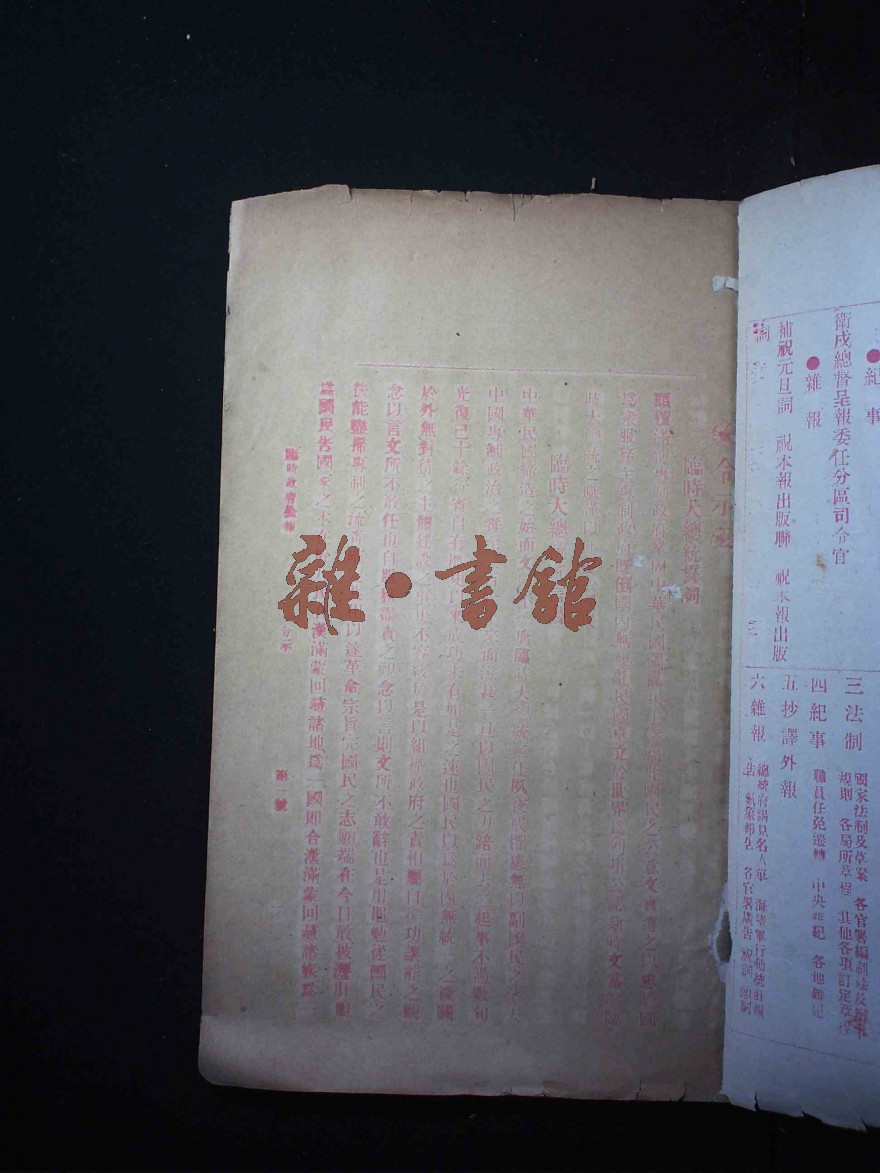 ●紀事
衛戍總督呈報委任分區司令官
●雜報
補祝元旦詞　祝本報出版聯　祝本報出版
詞
三法制　國家法制及草案　各官署編制法及辦事
規則　各局所章程　其他各項訂定章程
四紀事　職員任免遷轉　中央雜紀　各地雜記
五抄譯外報
六雜報　總統府謁見名人單　海陸軍行動統計報
告　氣象報告　各官署廣告　祝詞　頌詞
令示
臨時大總統誓詞
滿洲專制政府鞏固中華民國圖謀民生幸福此國民之公意文實遵之以忠於國
爲衆服務至專制政府既倒國內無變亂民國卓立於世界爲列邦公認斯時文當解臨
時大總統之職謹以
臨時大總
中華民國締造之始而文以不膺臨時大總統之任夙夜戒懼慮無以副國民之望夫
中國專制政治之毒至而滋甚一旦以國民之力踣而去之起事不過數旬
光復已十餘行省自有歷史以來成功未有如是之速也國民以爲於內無統一之機關
於外無對待之主體建設之事更不容緩於是以組織政府之責相屬自推功讓能之觀
念以言文所不敢任也自服務盡責之觀念以言則文所不敢辭也是用黽勉從國民之
後能盡掃專制之流毒以達革命宗旨完國民之志願端在今日敢披瀝肝膽
爲國民告國家之本漢滿蒙回藏諸地爲一國即合漢滿蒙回藏諸族爲一
臨時政府公報　令示　第一號
雜·書館